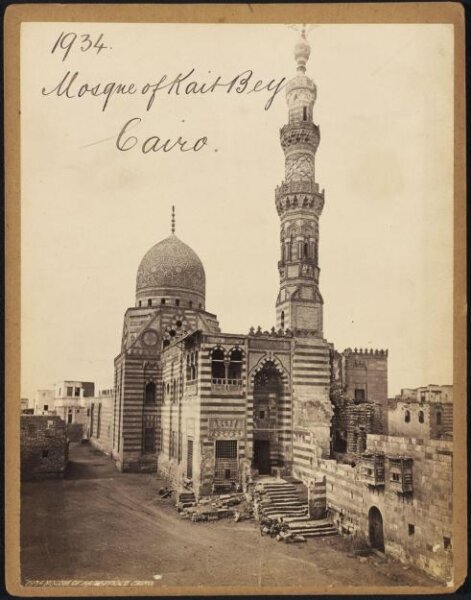 1934.
Mosque of Kait Bey
Cairo.
MOSQUE OF CAIRO